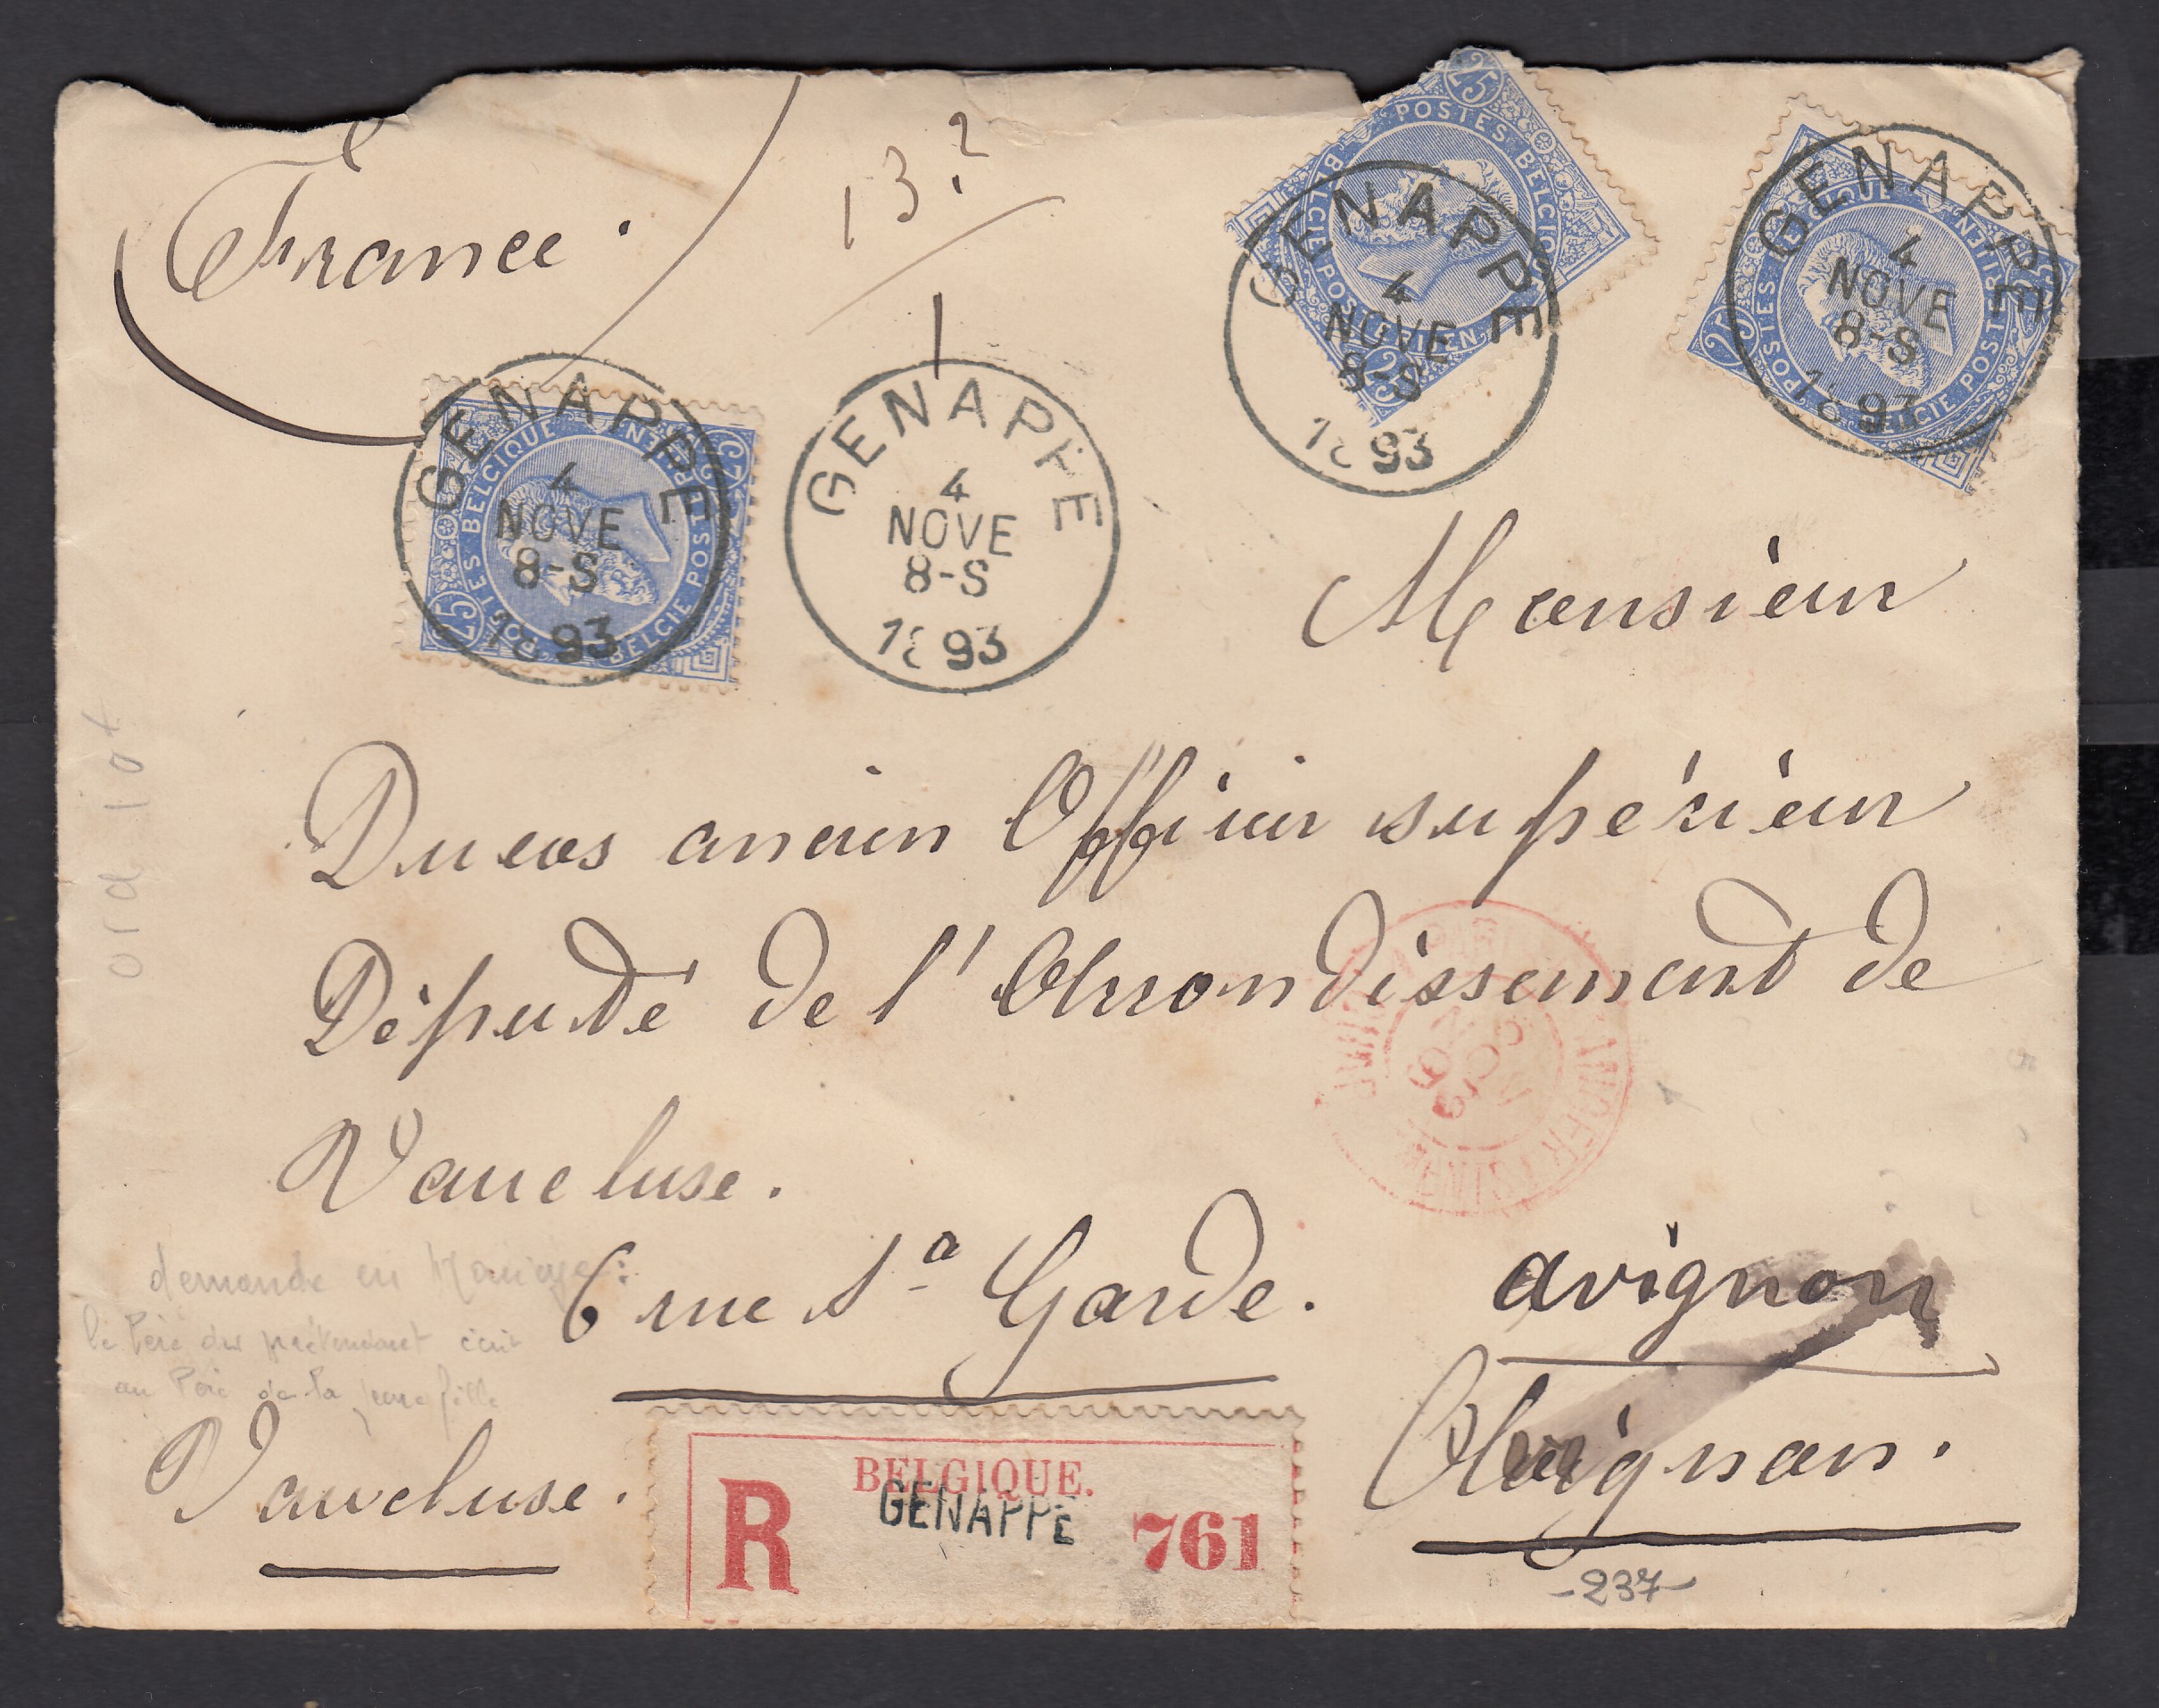 France.
13.?
1
25
POSTES BELGIQUE
POSTERIJEN
25
GENAPPE
4
NOVE
8-S
1893
25
BELGIQUE
POSTERIJEN
POSTES
BELGIE
GENAPPE
4
NOVE
8-S
1893
BELGIQUE
25
POSTES
BELGIE
25
GENAPPE
4
NOVE
8-S
1893
GENAPPE
4
NOVE
8-S
1893
Monsieur
Ducos ancien Officier supérieur
Député de l'Arrondissement de
Vaucluse.
6 rue Sa Garde. avignon
Avignon.
Vaucluse.
demande en Mariage:
le Père du prétendant écrit
au Père de la jeune fille
BELGIQUE.
R GENAPPE 761
-237-